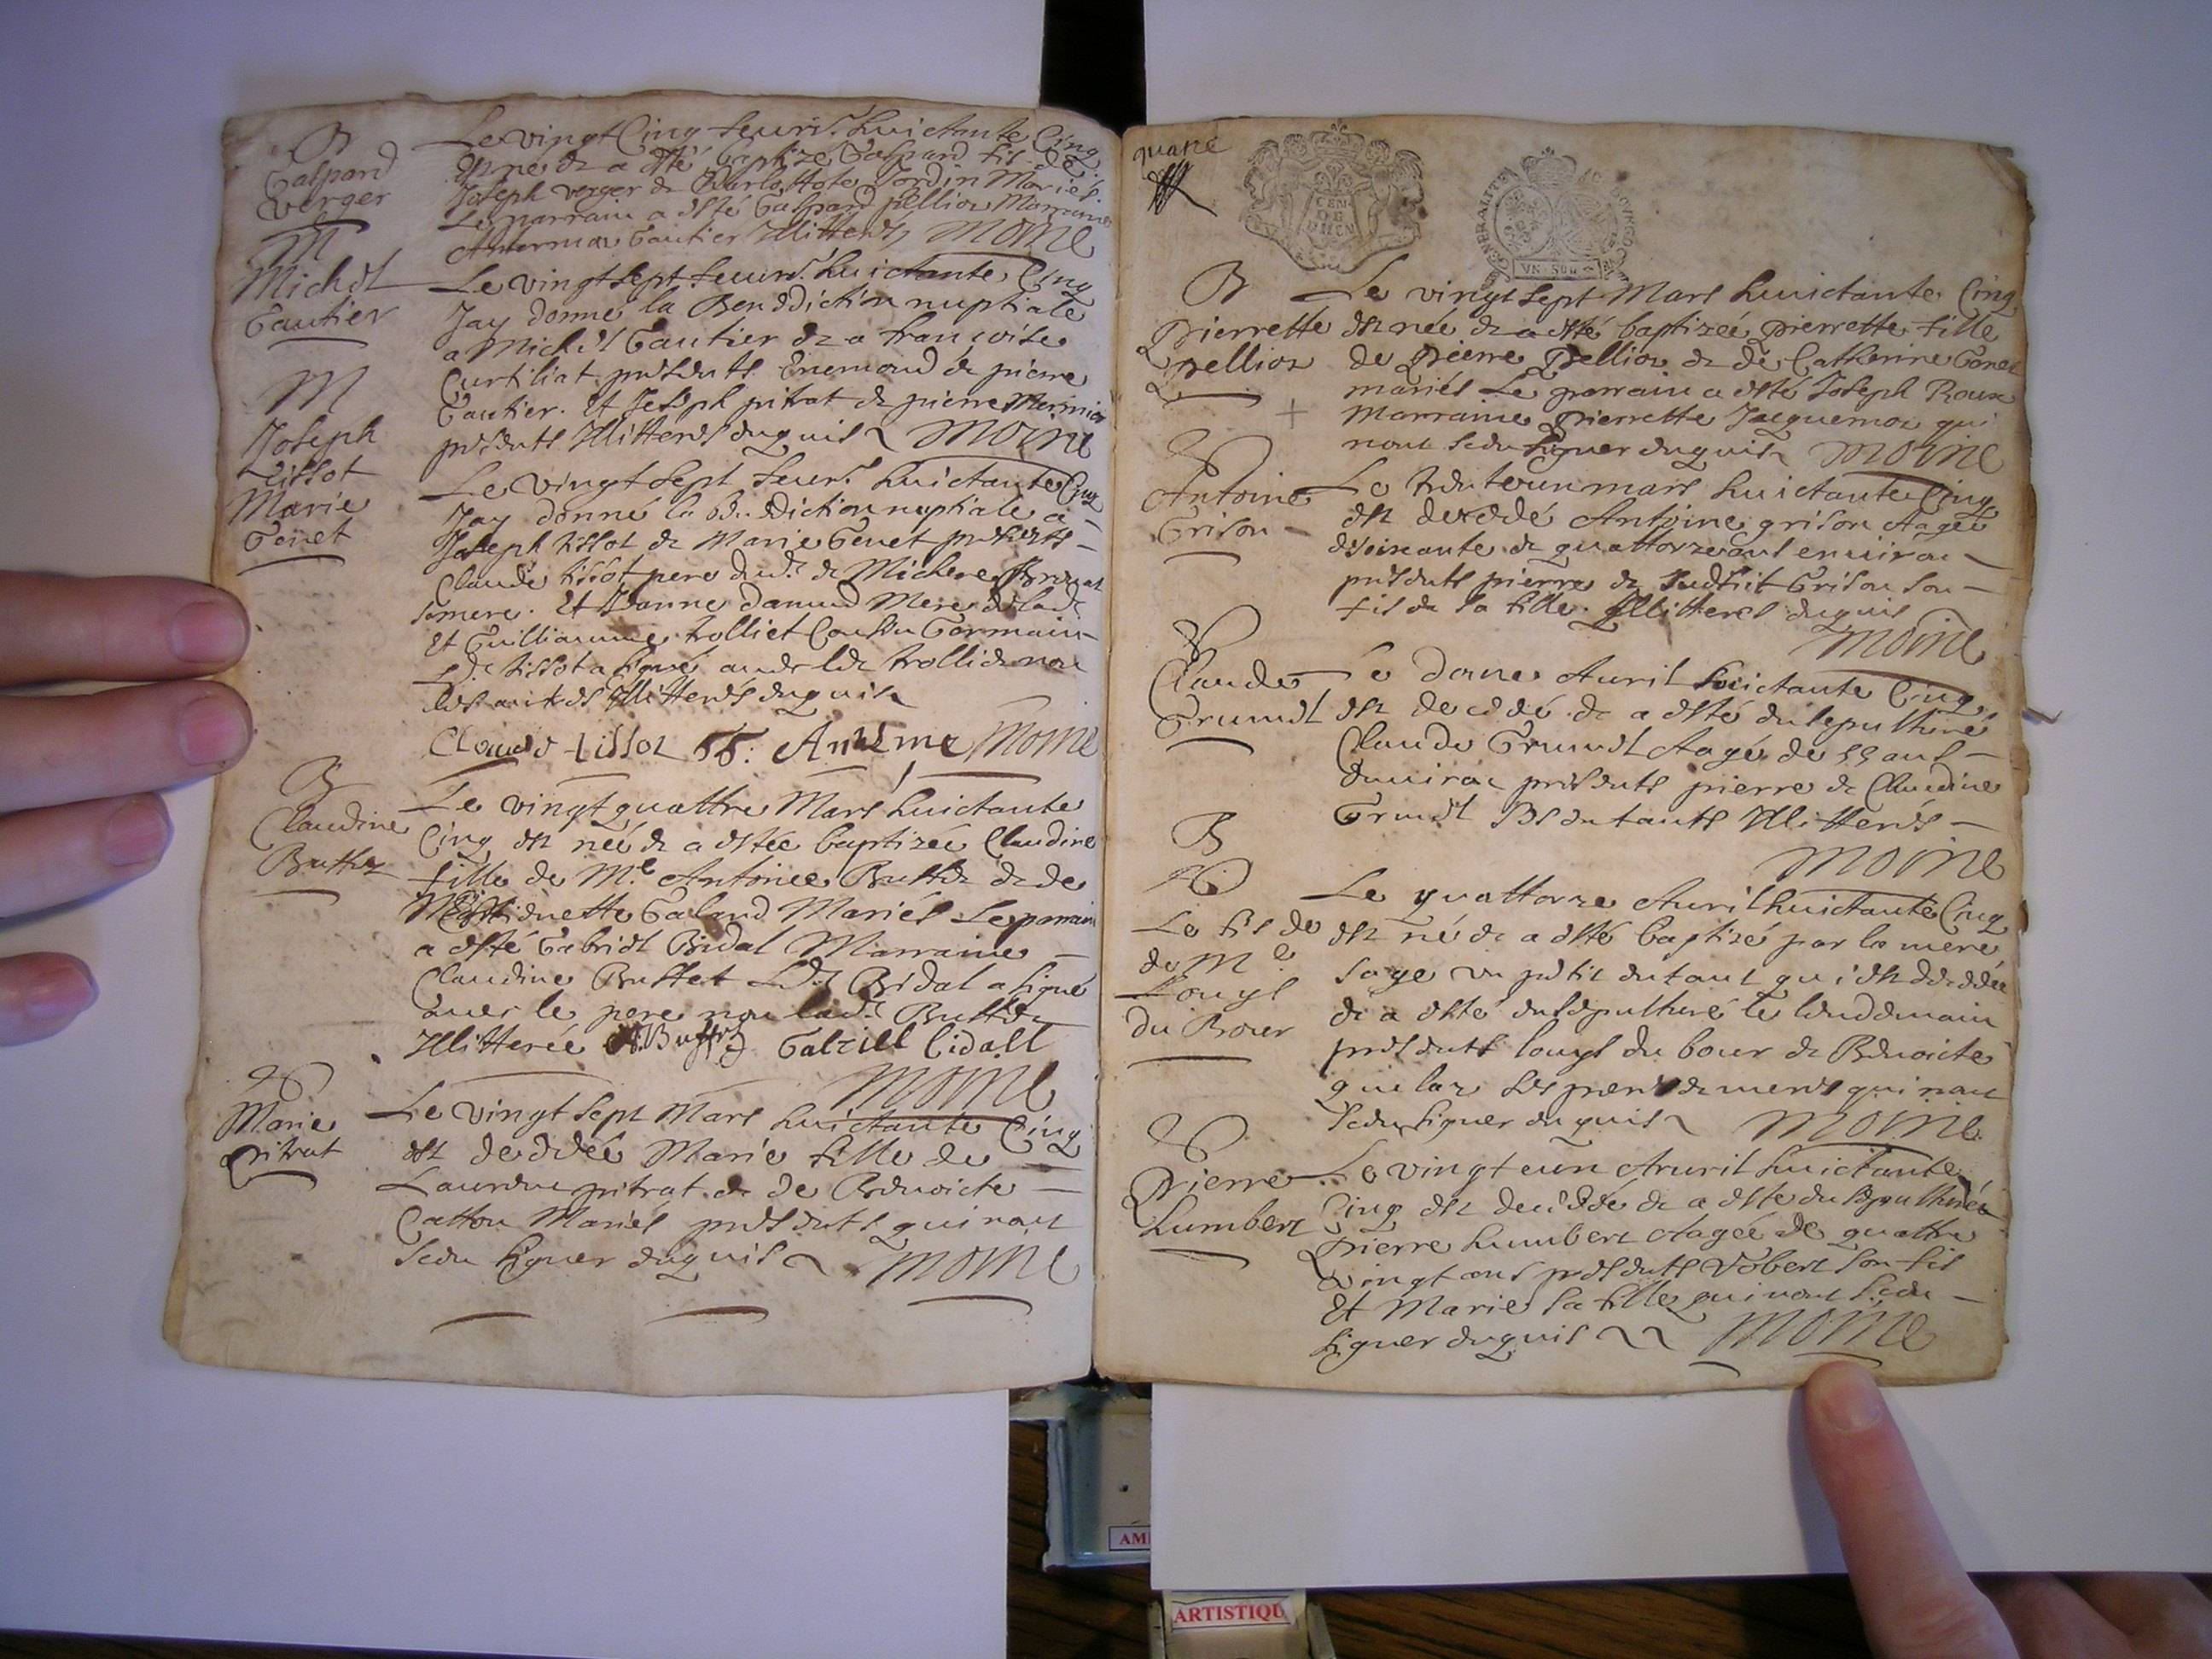 B
Gaspard
Verger
Le vingt Cinq feuri.r huictante Cinq
est né et a esté baptizé Gaspard fils de
Joseph verger et Jordin Mariés
Le parrain a esté Gaspard pellion Marraine
Gautier Illitterés Moine
M
Michel
Gautier
Le vingt sept feuri.r huictante Cinq
Jay donné la Benediction nuptiale
a Michel Gautier et a francoise
Curtiliat presents Enemond et pierre
Gautier. Et Joseph pitrat et pierre
presents Illitterés enquis Moine
M
Joseph
tissot
Marie
Genet
Le vingt sept feur.r huictante Cinq
Jay donné la benediction nuptiale a
Joseph tissot et Marie Genet presents
Claude tissot pere dud.t et Michere
sa mere. Et Jeanne Mere de lad.
Et Guilliaume trolliet Cousin Germain
Ld. tissot a signé auec led. trolliet non
les autres Illitterés enquis
Claude tissot Moine
B
Claudine
Buffet
Le vingt quattre Mars huictante
Cinq est née et a estée baptizée Claudine
fille de M.e Antoine Buffet et de
Galand Mariés Le parrain
a esté Gabriel Bidal Marraine
Claudine Buffet Led. Bidal a signé
auec le pere non lad.e Buffet
Illitterée A. Buffet Gabriell bidall
Moine
Marie
pitrat
Le vingt sept Mars huictante Cinq
est decedée Marie fille de
Laurent pitrat et de Benoicte
Catton Mariés presents qui n'ont
sceu signer enquis Moine
GENERALITE
UN SOU
B
Pierrette
pellion
Le vingt sept Mars huictante Cinq
est née et a esté baptizeé pierrette fille
de pierre pellion et de Catherine Genet
mariés Le parrain a esté Joseph Roux
Marraine pierrette Jacquemon qui
n'ont sceu signer enquis Moine
Antoine
Grison
Le trente un mars huictante Cinq
est decedé Antoine grison Aagé
de soixante et quattorze ans enuiron
presents pierre et Grison son
fils et sa fille. Illitterés enquis
Moine
Claude
Grumel
Le douze Auril huictante Cinq
est decedé et a esté ensepulturé
Claude Grumel Aagé de 55 ans
enuiron presents pierre et Claudine
Grumel ses enfants Illitterés
Moine
B
Le fils de
de M.e
Louys
du Bour
Le quattorze Auril huictante Cinq
est né et a esté baptisé par la mere
sage un petit enfant qui est decedée
et a esté ensepulturé le lendemain
presents louys du bour et Benoicte
ses peres et meres qui n'ont
sceu signer enquis Moine
Pierre
humbert
Le vingt eun Auril huictante
Cinq est decedée et a esté ensepulturée
pierre humbert Aagée de quattre
vingt ans presents Robert son fils
Et Marie sa fille qui n'ont sceu
signer enquis Moine
AM
ARTISTIQU